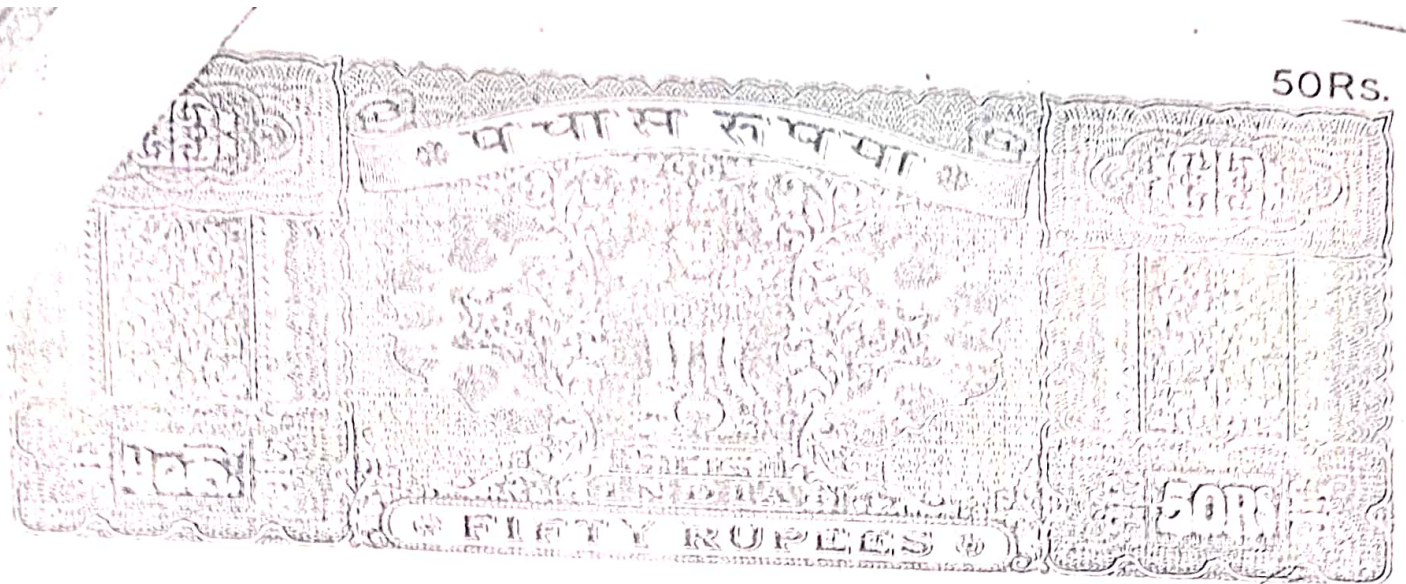 50Rs.
पचास रूपया
INDIA
FIFTY RUPEES
50RS